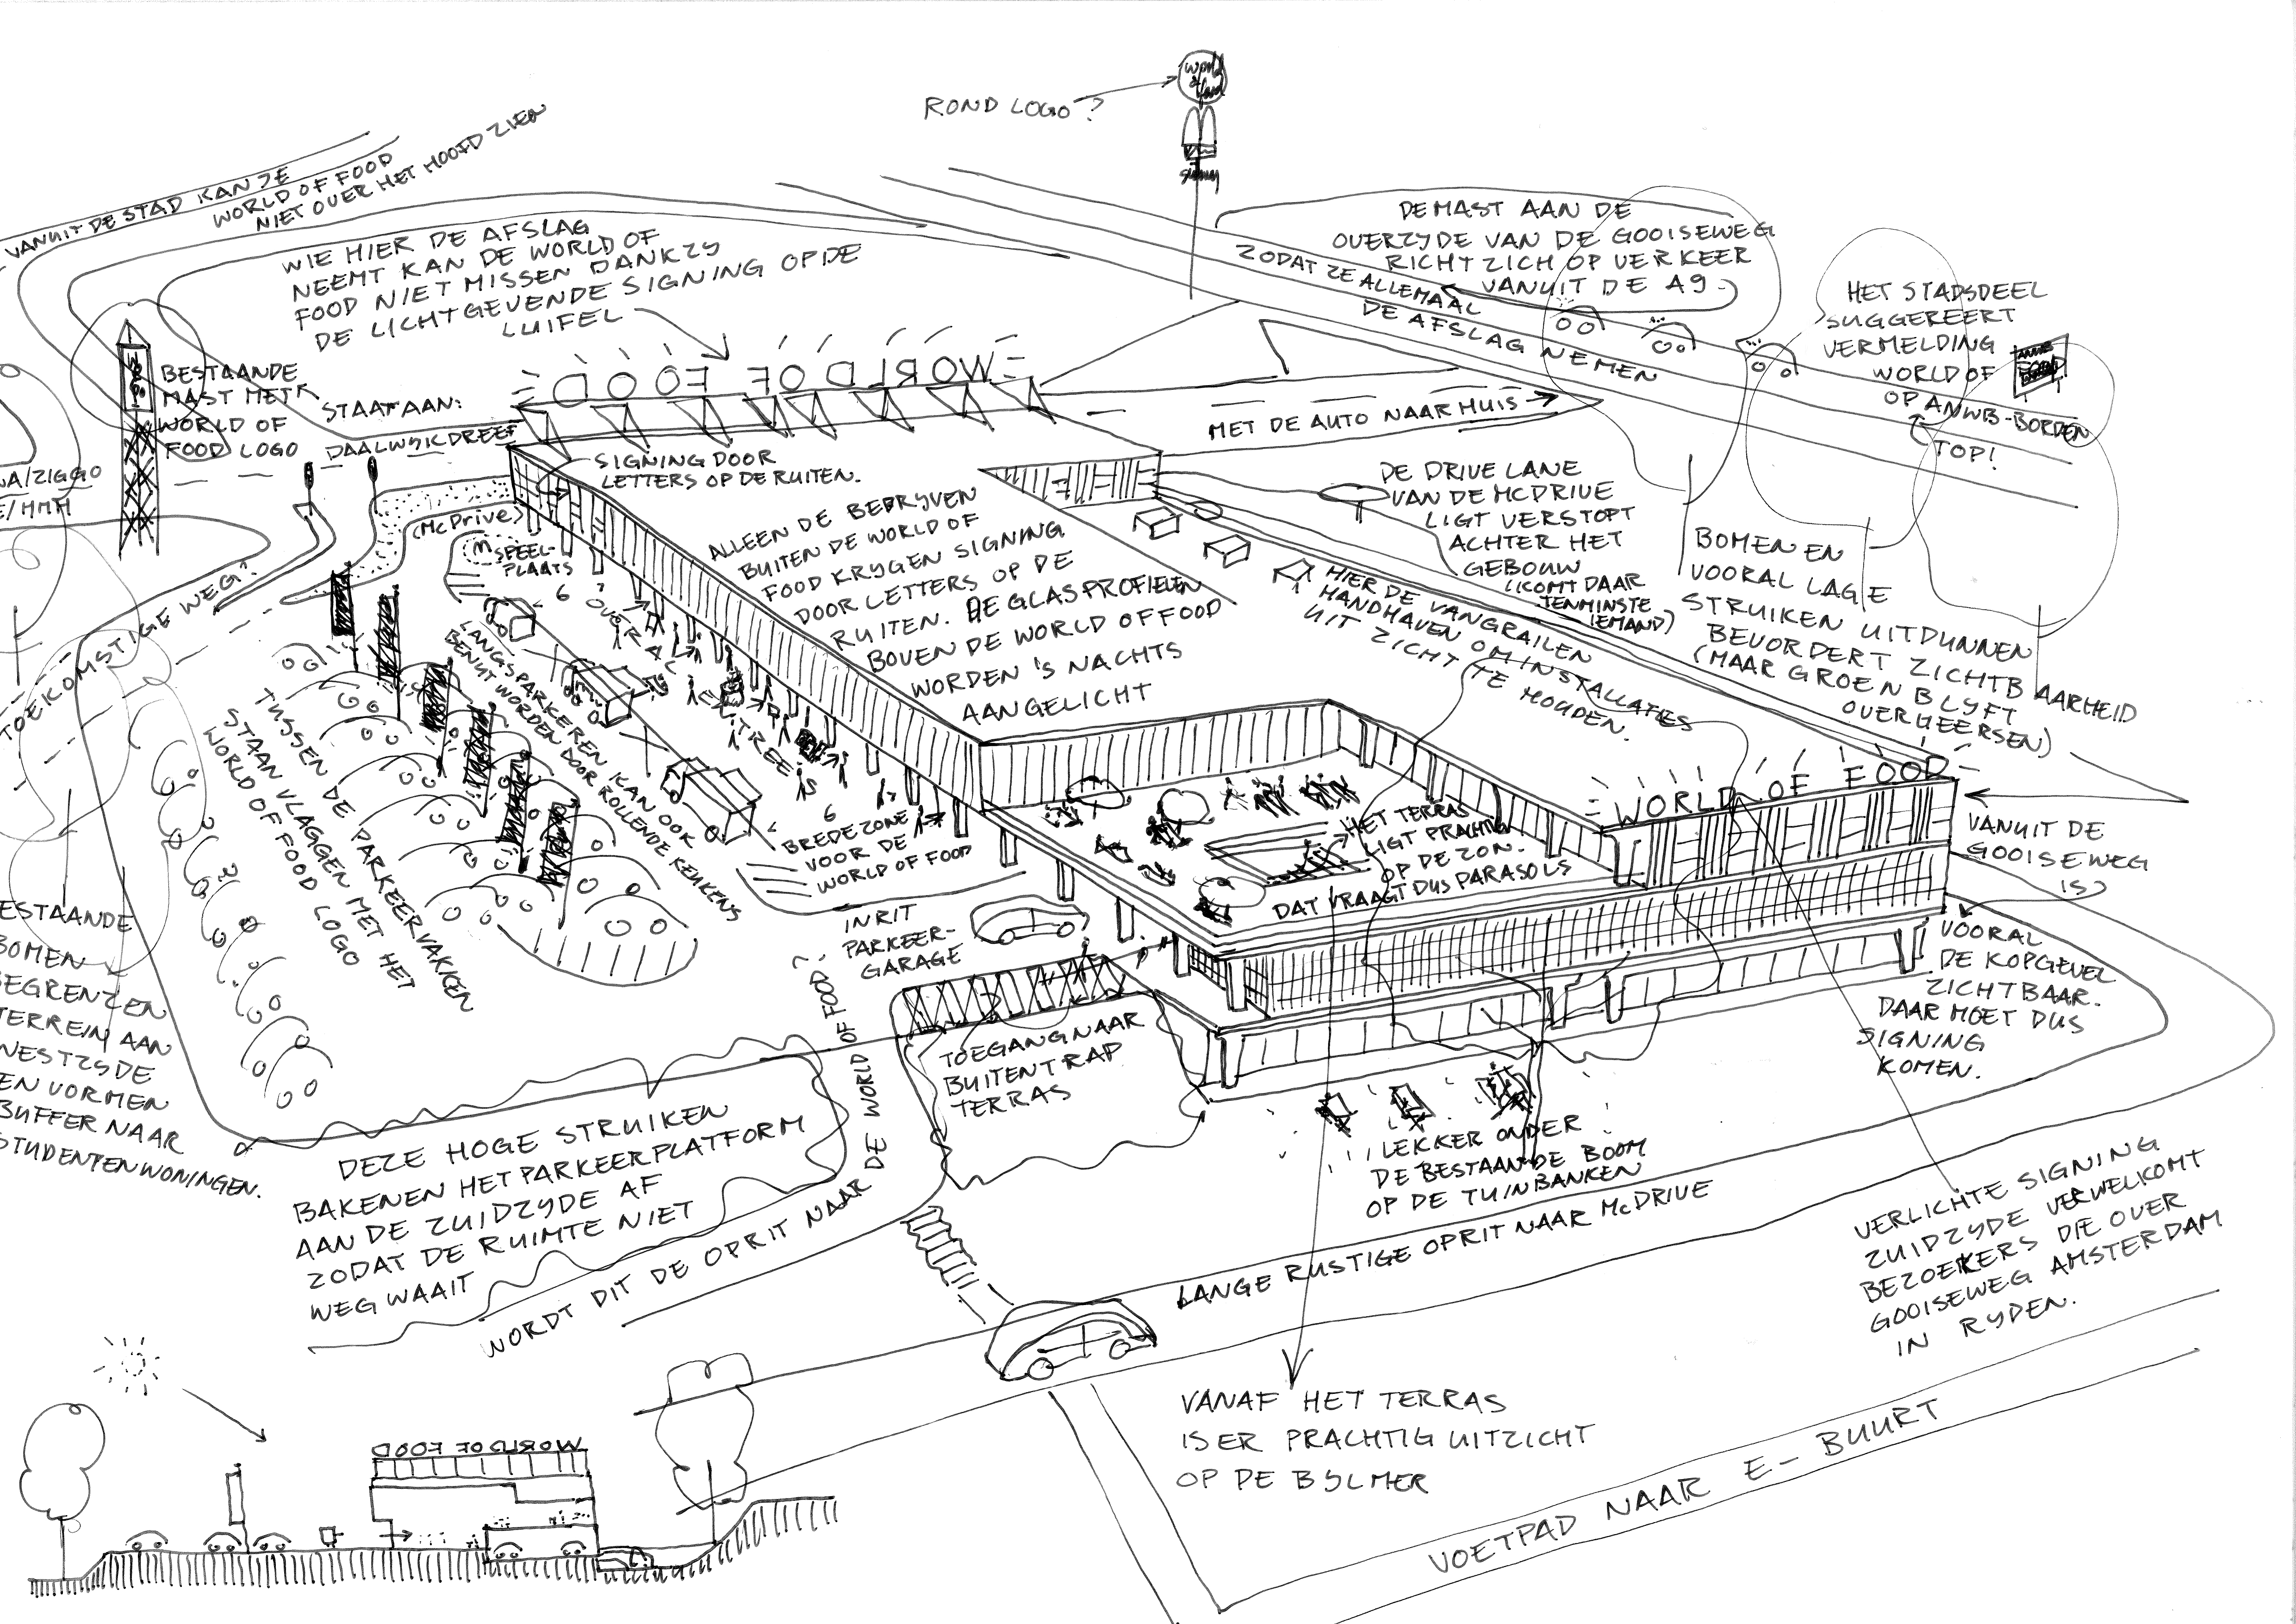 ROND LOGO?
world
of
food
VANUIT DE STAD KAN JE
WORLD OF FOOD
NIET OVER HET HOOFD ZIEN
WIE HIER DE AFSLAG
NEEMT KAN DE WORLD OF
FOOD NIET MISSEN DANKZY
DE LICHTGEVENDE SIGNING OP DE
LUIFEL
WORLD OF FOOD
DE MAST AAN DE
OVERZYDE VAN DE GOOISEWEG
RICHT ZICH OP VERKEER
VANUIT DE A9
ZODAT ZE ALLEMAAL
DE AFSLAG NEMEN
HET STADSDEEL
SUGGEREERT
VERMELDING
WORLD OF
OP ANWB-BORDEN
TOP!
BESTAANDE
MAST MET
WORLD OF
FOOD LOGO
STAAT AAN:
DAALWIJKDREEF
A/ZIGGO
E/HMH
MET DE AUTO NAAR HUIS
SIGNING DOOR
LETTERS OP DE RUITEN.
(McDrive)
SPEEL-
PLAATS
ALLEEN DE BEDRYVEN
BUITEN DE WORLD OF
FOOD KRYGEN SIGNING
DOOR LETTERS OP DE
RUITEN. DE GLASPROFIELEN
BOVEN DE WORLD OF FOOD
WORDEN 'S NACHTS
AANGELICHT
DE DRIVE LANE
VAN DE MCDRIVE
LIGT VERSTOPT
ACHTER HET
GEBOUW
(KOMT DAAR
TENMINSTE
IEMAND)
HIER DE VANGRAILEN
HANDHAVEN OM INSTALLATIES
UIT ZICHT TE HOUDEN.
BOMEN EN
VOORAL LAGE
STRUIKEN UITDUNNEN
BEVORDERT ZICHTBAARHEID
(MAAR GROEN BLYFT
OVERHEERSEN)
TOEKOMSTIGE WEG?
OVERAL
ENTREES
LANGSPARKEREN KAN OOK
BENUT WORDEN DOOR ROLLENDE KEUKENS
TUSSEN DE PARKEERVAKKEN
STAAN VLAGGEN MET HET
WORLD OF FOOD LOGO
BREDE ZONE
VOOR DE
WORLD OF FOOD
HET TERRAS
LIGT PRACHTIG
OP DE ZON.
DAT VRAAGT DUS PARASOLS
WORLD OF FOOD
VANUIT DE
GOOISEWEG
IS
VOORAL
DE KOPGEVEL
ZICHTBAAR.
DAAR MOET DUS
SIGNING
KOMEN.
INRIT
PARKEER-
GARAGE
TOEGANG NAAR
BUITENTRAP
TERRAS
ESTAANDE
BOMEN
EGRENZEN
TERREIN AAN
WESTZYDE
EN VORMEN
BUFFER NAAR
STUDENTENWONINGEN.
DEZE HOGE STRUIKEN
BAKENEN HET PARKEERPLATFORM
AAN DE ZUIDZYDE AF
ZODAT DE RUIMTE NIET
WEG WAAIT
WORDT DIT DE OPRIT NAAR DE WORLD OF FOOD?
LEKKER ONDER
DE BESTAANDE BOOM
OP DE TUINBANKEN
LANGE RUSTIGE OPRIT NAAR McDRIVE
VERLICHTE SIGNING
ZUIDZYDE VERWELKOMT
BEZOEKERS DIE OVER
GOOISEWEG AMSTERDAM
IN RYDEN.
VANAF HET TERRAS
IS ER PRACHTIG UITZICHT
OP DE BYLMER
VOETPAD NAAR E-BUURT
WORLD OF FOOD